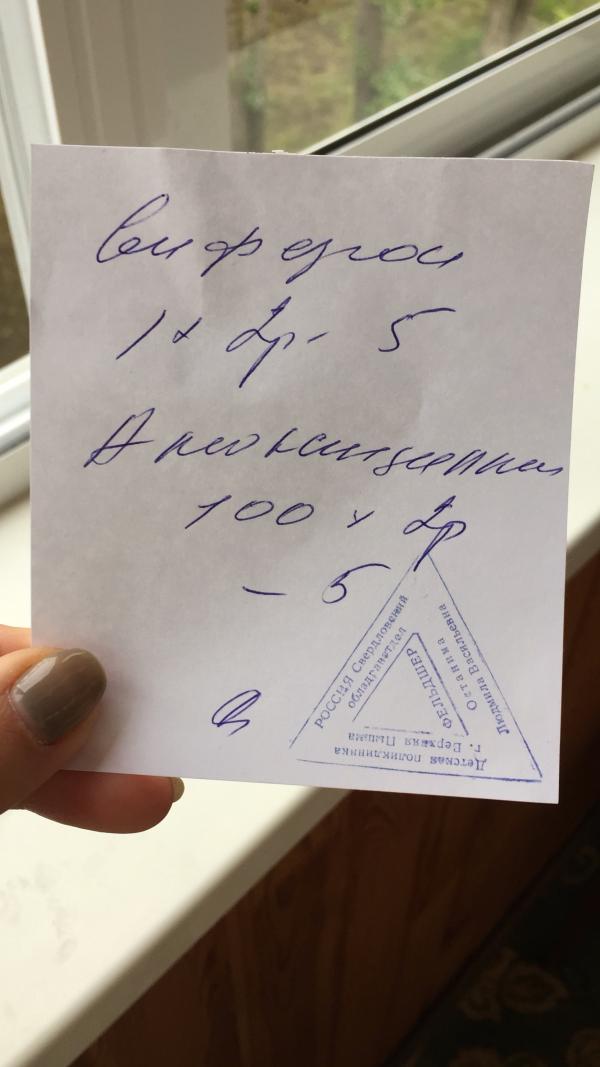 Виферон
1 х 2р - 5
Амоксициллин
100 х 2р
- 5
РОССИЯ Свердловский
облздравотдел
Людмила Васильевна
Останина
ФЕЛЬДШЕР
г. Верхняя Пышма
Детская поликлиника